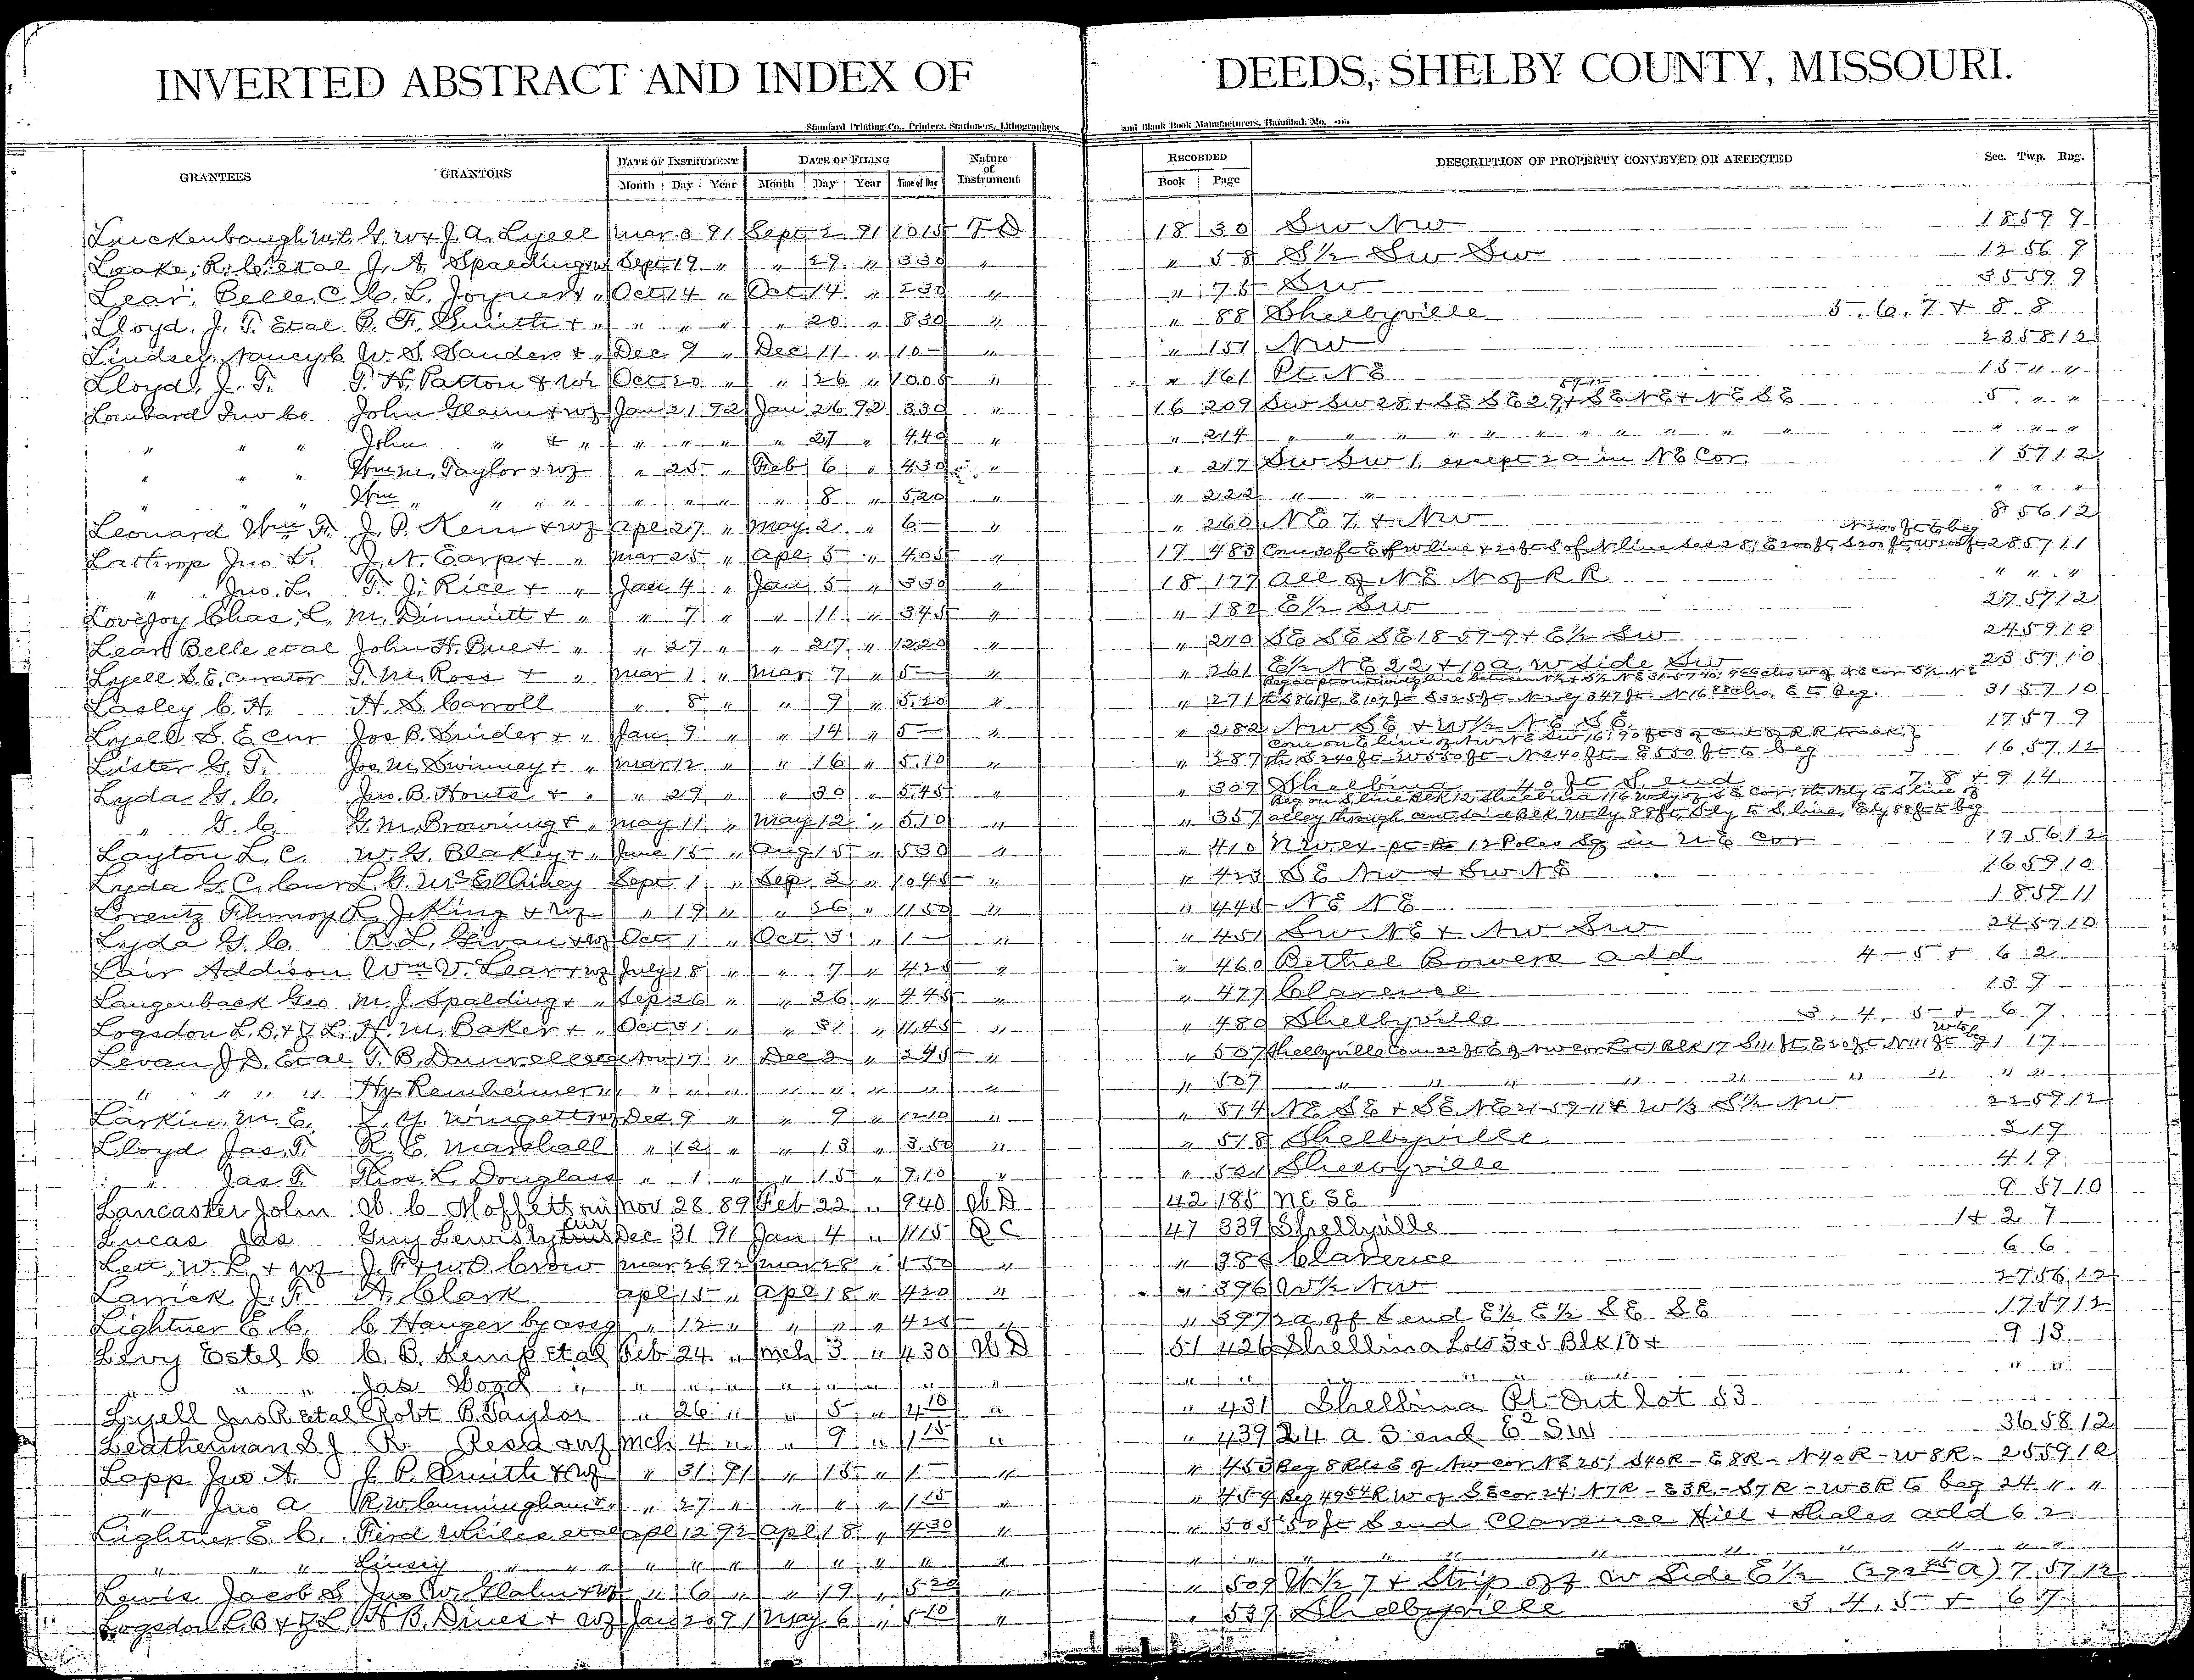 INVERTED ABSTRACT AND INDEX OF DEEDS, SHELBY COUNTY, MISSOURI.
Standard Printing Co., Printers, Stationers, Lithographers and Blank Book Manufacturers, Hannibal, Mo.
GRANTEES GRANTORS DATE OF INSTRUMENT DATE OF FILING Nature of Instrument RECORDED DESCRIPTION OF PROPERTY CONVEYED OR AFFECTED Sec. Twp. Rng.
Month Day Year Month Day Year Time of Day Book Page
Luckenbaugh G. W. & J. A. Lyell Mar 91 Sept 2 91 1015 TD 18 30 SW NW 18 59 9
Leake, R. C. etal J. A. Spalding Sept 19 " " 29 " 330 " " 58 S½ SW SW 12 56 9
Lear, Belle, C C. L. Joyner & " Oct 14 " Oct 14 " 230 " " 75 SW 35 59 9
Lloyd, J. T. Etal B. F. Smith & " " " " " 20 " 830 " " 88 Shelbyville 5, 6, 7 & 8 8
Lindsey, Nancy C W. S. Sanders & " Dec 9 " Dec 11 " 10 – " " 151 NW 23 58 12
Lloyd, J. T. T. H. Patton & Wf Oct 20 " " 26 " 1005 " " 161 Pt. NE 15 " "
Lombard Inv Co John Glenn & wf Jan 21 92 Jan 26 92 330 " 16 209 SW SW 28, & SE SE 29, & SE NE & NE SE 5 " "
" " " John " & " " " " " 27 " 440 " " 214 " " " " " " " " " " " "
" " " Wm M. Taylor & wf " 25 " Feb 6 " 430 " " 217 SW SW 1, except 2 a in NE Cor. 1 57 12
" " " Wm " " " " " " " " 8 " 520 " " 222 " " " " "
Leonard Wm F. J. P. Kern & wf Apl 27 " May 2 " 6 – " " 260 NE 7, & NW 8 56 12
Lathrop Jno L. J. A. Earp & " Mar 25 " Apl 5 " 405 " 17 483 N 200 ft to beg 28 57 11
" Jno. L. T. J. Rice & " Jan 4 " Jan 5 " 330 " 18 177 All of NE N of R R " " "
Lovejoy Chas. L. M. Dimmitt & " " 7 " " 11 " 345 " " 182 E½ SW 27 57 12
Lear Belle etal John H. Bue & " " 27 " " 27 " 1220 " " 210 SE SE SE 18-59-9 & E½ SW 24 59 10
Lyell S. E. Curator T. M. Ross & " Mar 1 " Mar 7 " 5 – " " 261 E½ NE 22 & 10 a. W Side SW 23 57 10
Lasley C. H. H. S. Carroll " 8 " " 9 " 520 " " 271 31 57 10
Lyell S. E Cur Jos B. Snider & " Jan 9 " " 14 " 5 – " " 282 NW SE & W½ NE SE 17 57 9
Lister G. T. Jos. M. Swinney & " Mar 12 " " 16 " 510 " " 287 th S 240 ft W 550 ft N 240 ft E 550 ft to beg 16 57 12
Lyda G. C. Jno. B. Houts & " " 29 " " 30 " 545 " " 309 Shelbina 40 ft S. end 7, 8 & 9 14
" G. C. G. M. Browning & " May 11 " May 12 " 510 " " 357
Layton L. C. W. G. Blakey & " June 15 " Aug 15 " 530 " " 410 12 Poles Sq in NE Cor 17 56 12
Lyda G. C. Cur L. G. McElhiney Sept 1 " Sep 2 " 1045 " " 423 SE NW & SW NE 16 59 10
Lorentz Flurnoy L. J. King & wf " 19 " " 26 " 1150 " " 445 NE NE 18 59 11
Lyda G. C. R. L. Givan & wf Oct 1 " Oct 3 " 1 – " " 451 SW NE & NW SW 24 57 10
Lair Addison Wm V. Lear & wf July 18 " " 7 " 425 " " 460 Bethel Bowers add 4-5 & 6 2
Langenback Geo M. J. Spalding & " Sep 26 " " 26 " 445 " " 477 Clarence 13 9
Logsdon L. B. & Z. L. H. M. Baker & " Oct 31 " " 31 " 1145 " " 480 Shelbyville 3, 4, 5 & 6 7
Levan J. D. Etal T. B. Nov 17 " Dec 2 " 245 " " 507 Shelbyville Com 22 ft E of NW cor Lot 1 Blk 17 1 17
" " " " Hy Reinheimer " " " " " " " " " " 507 " " " " " " " "
Larkin, M. E. L. Y. Wingett & wf Dec 9 " " 9 " 1210 " " 514 NE SE & SE NE 21-59-11 & W½ S½ NW 22 59 12
Lloyd Jas. T. R. E. Marshall " 12 " " 13 " 350 " " 518 Shelbyville 2 19
" Jas T. Thos. L. Douglass " 1 " " 15 " 910 " " 521 Shelbyville 4 19
Lancaster John W. C. Moffett Nov 28 89 Feb 22 " 940 WD 42 185 NE SE 9 57 10
Lucas Ida Guy Lewis by cur Dec 31 91 Jan 4 " 1115 QC 47 339 Shelbyville 1 & 2 7
W. R. & wf J. F. & W. D. Crow Mar 26 92 Mar 28 " 150 " " 386 Clarence 6 6
Larrick J. F. A. Clark Apl 15 " Apl 18 " 420 " " 396 W½ NW 27 56 12
Lightner E. C. C. Hanger by assg " 12 " " " " 425 " " 397 2 a. off S end E½ E½ SE SE 17 57 12
Levy Estel C C. B. Kemp Etal Feb 24 " Mch 3 " 430 WD 51 426 Shelbina Lots 3 & 5 Blk 10 & 9 13
" " " Jas Wood " " " " " " " " " " " " " "
Lyell Jno R etal Robt B. Taylor " 26 " " 5 " 410 " " 431 Shelbina Pt Out lot 53
Leatherman S J R. Read & wf Mch 4 " " 9 " 115 " " 439 24 a S end E2 SW 36 58 12
Lapp Jno A. J. P. Smith & wf " 31 91 " 15 " 1 – " " 453 Beg 8 Rds E of NW cor NE 25; S40R – E8R – N40R – W8R – 25 59 12
" Jno A R. W. Cunningham & " " 27 " " " " 115 " " 454 Beg 49 54 R W of SE cor 24; N7R – E3R – S7R – W3R to beg 24 " "
Lightner E. C. Ferd Whiles etal Apl 12 92 Apl 18 " 430 " " 505 50 ft S end Clarence Hill & Shales add 6 2
" " " Linsey " " " " " " " " " " " " " " " " "
Lewis Jacob S Jno W. Glahn & wf " 6 " " 19 " 520 " " 509 W½ 7 & Strip off W Side E½ 7 57 12
Logsdon L. B & Z. L. H B. Dines & wf Jan 20 91 May 6 " 510 " " 537 Shelbyville 3, 4, 5 & 6 7